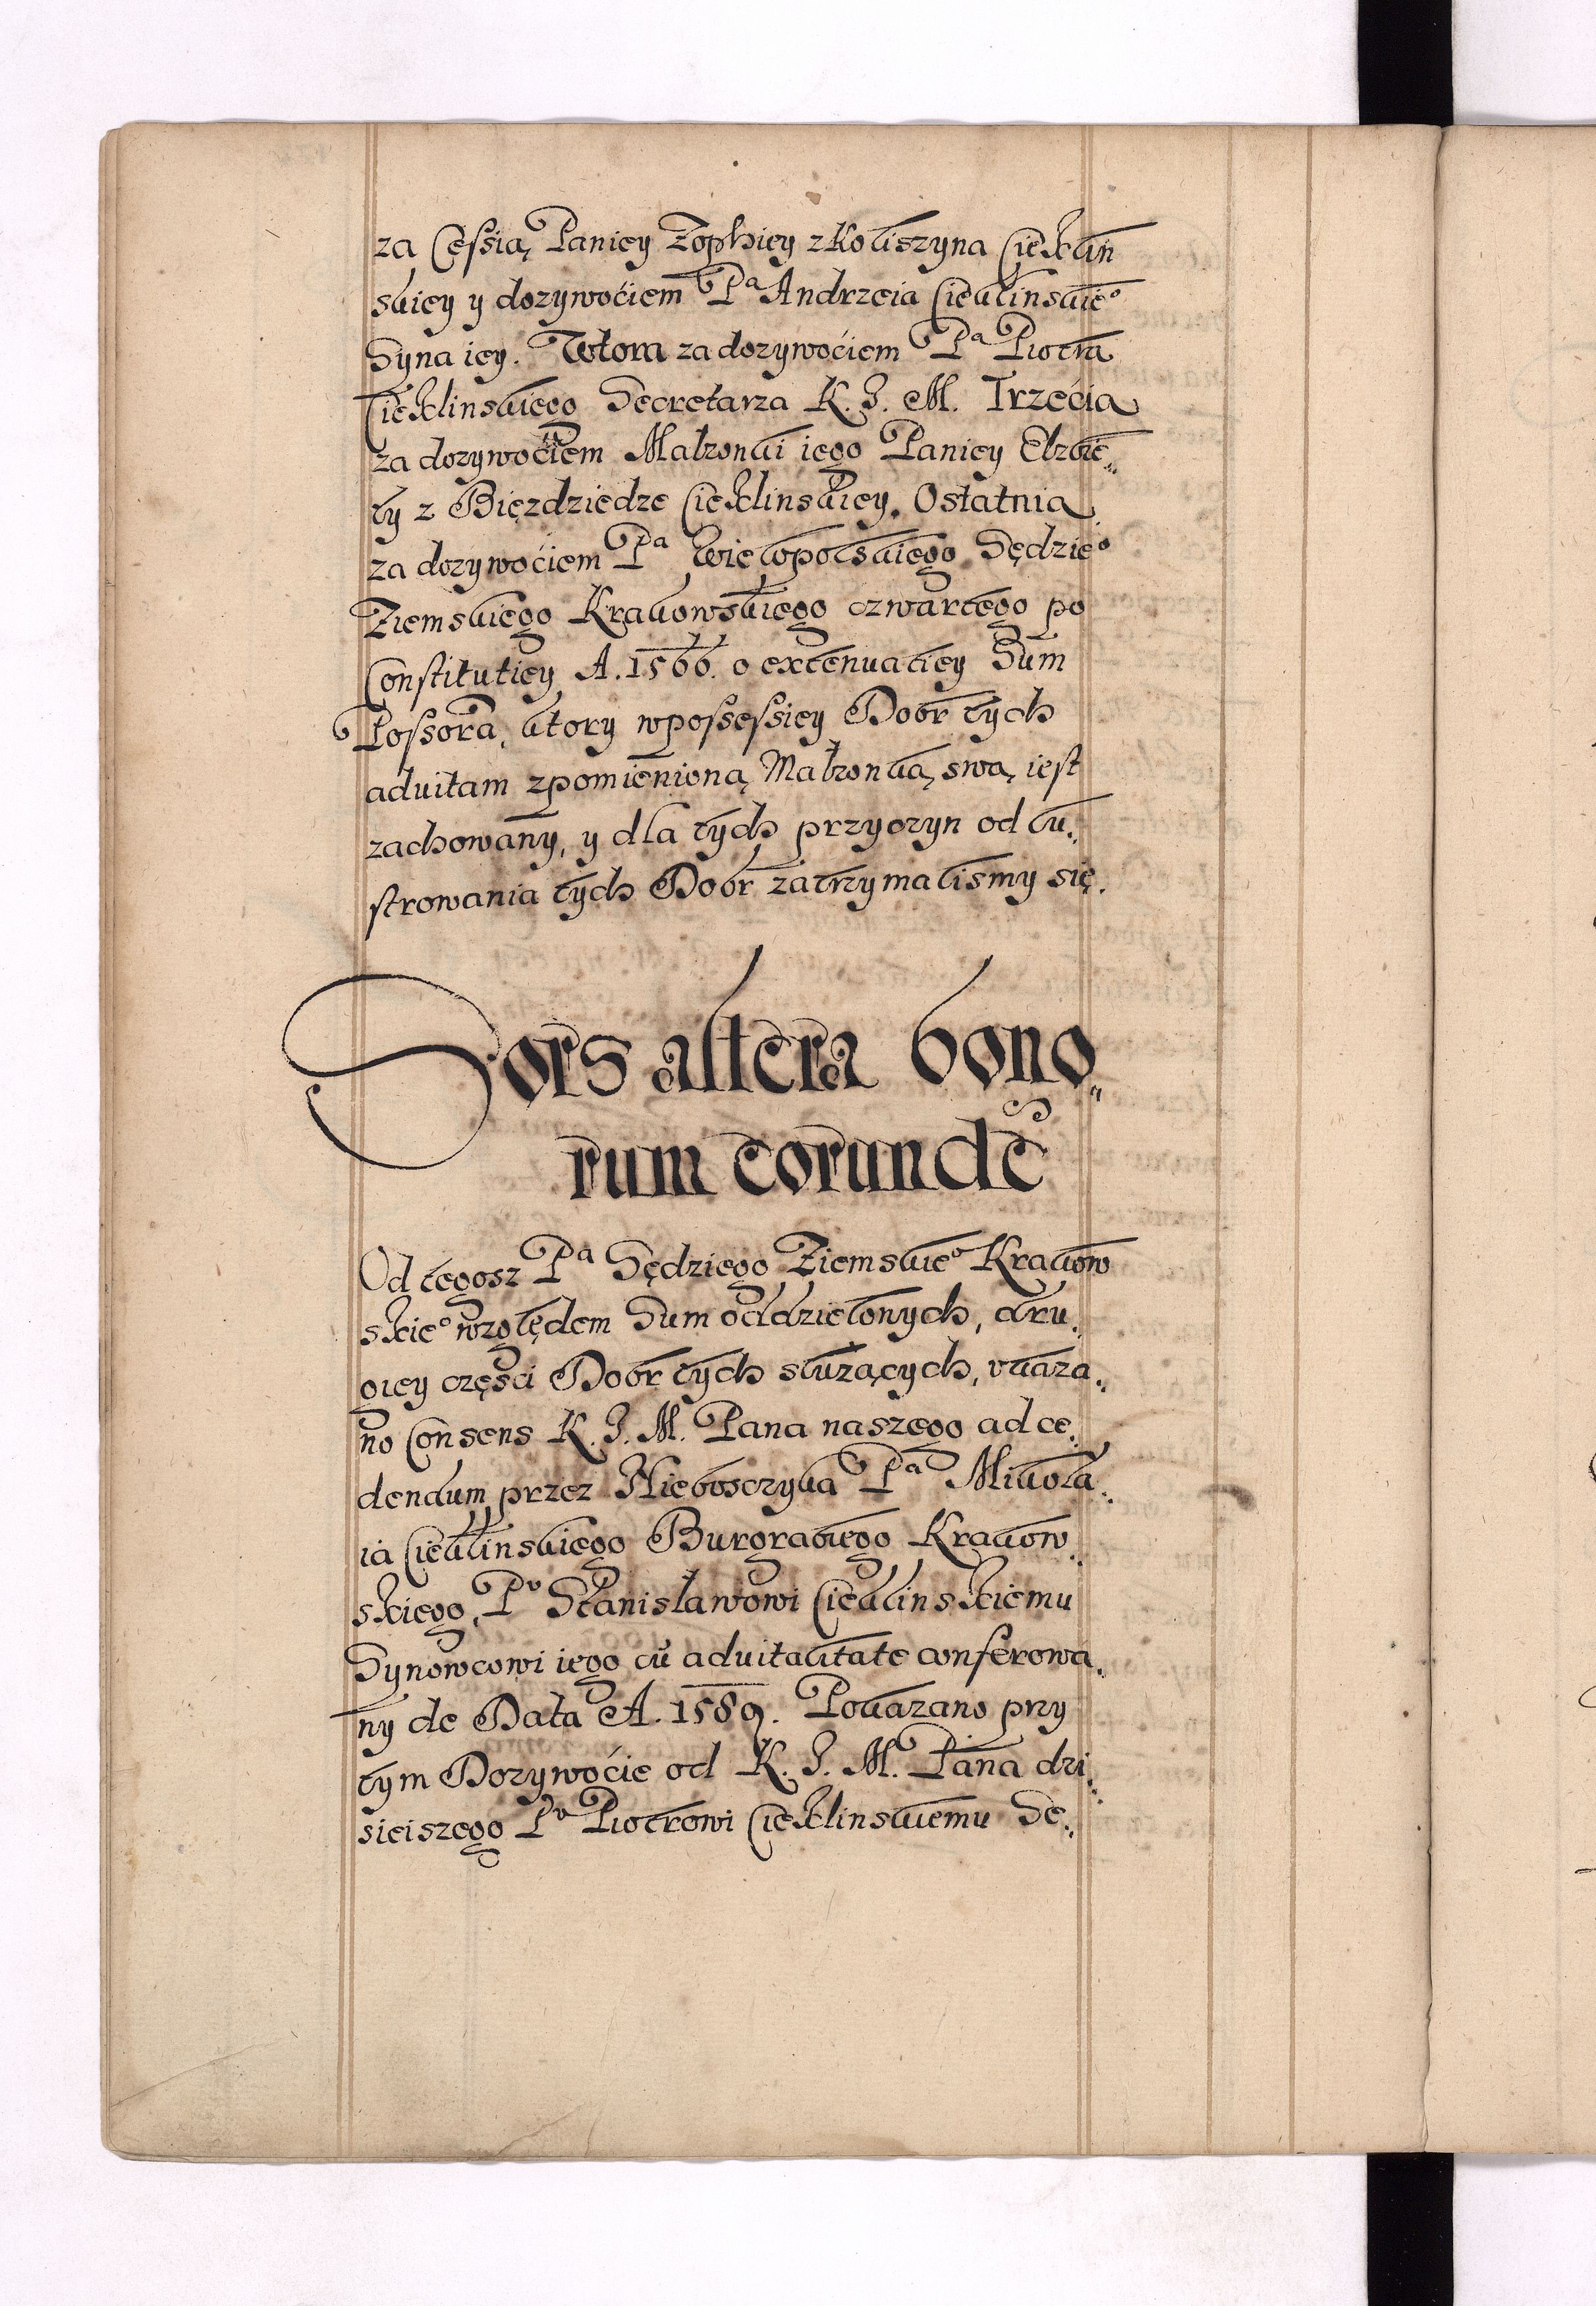 za Cessią Paniey Zophiey z Koliszyna Cieklin
skiey y dozywociem Pᵃ Andrzeia Cieklinskieᵒ
Syna iey. Wtora za dozywociem Pᵃ Piotra
Cieklinskiego Secretarza K. J. M. Trzecia
za dozywociem Małzonki iego Paniey Elzbie„
ty z Bięzdziedze Cieklinskiey. Ostatnia
za dozywociem Pᵃ Wielopolskiego Sędzieᵒ
Ziemskiego Krakowskiego czwartego po
Constitutiey A. 1566. o extenuatiey Sum
Possora, ktory w possessiey Dobr tych
ad vitam z pomienioną Małzonką swą iest
zachowany, y dla tych przyczyn od lu„
strowania tych Dobr zatrzymalismy się.
Sors altera bono„
rum eorundē
Od tegosz Pᵃ Sędziego Ziemskieᵒ Krakow
skieᵒ względem Sum oddzielonych, dru„
giey części Dobr tych sluzących, vkaza„
no Consens K. J. M. Pana naszego ad ce„
dendum przez Nieboszczyka Pᵃ Mikola„
ia Cieklinskiego Burgrabiego Krakow„
skiego, Pᵛ Stanisławowi Cieklinskiemu
Synowcowi iego cū advitalitate conferowa„
ny de Data A. 1589. Pokazano przy
tym Dozywocie od K. J. M. Pana dzi„
sieiszego Pᵛ Piotrowi Cieklinskiemu Se„